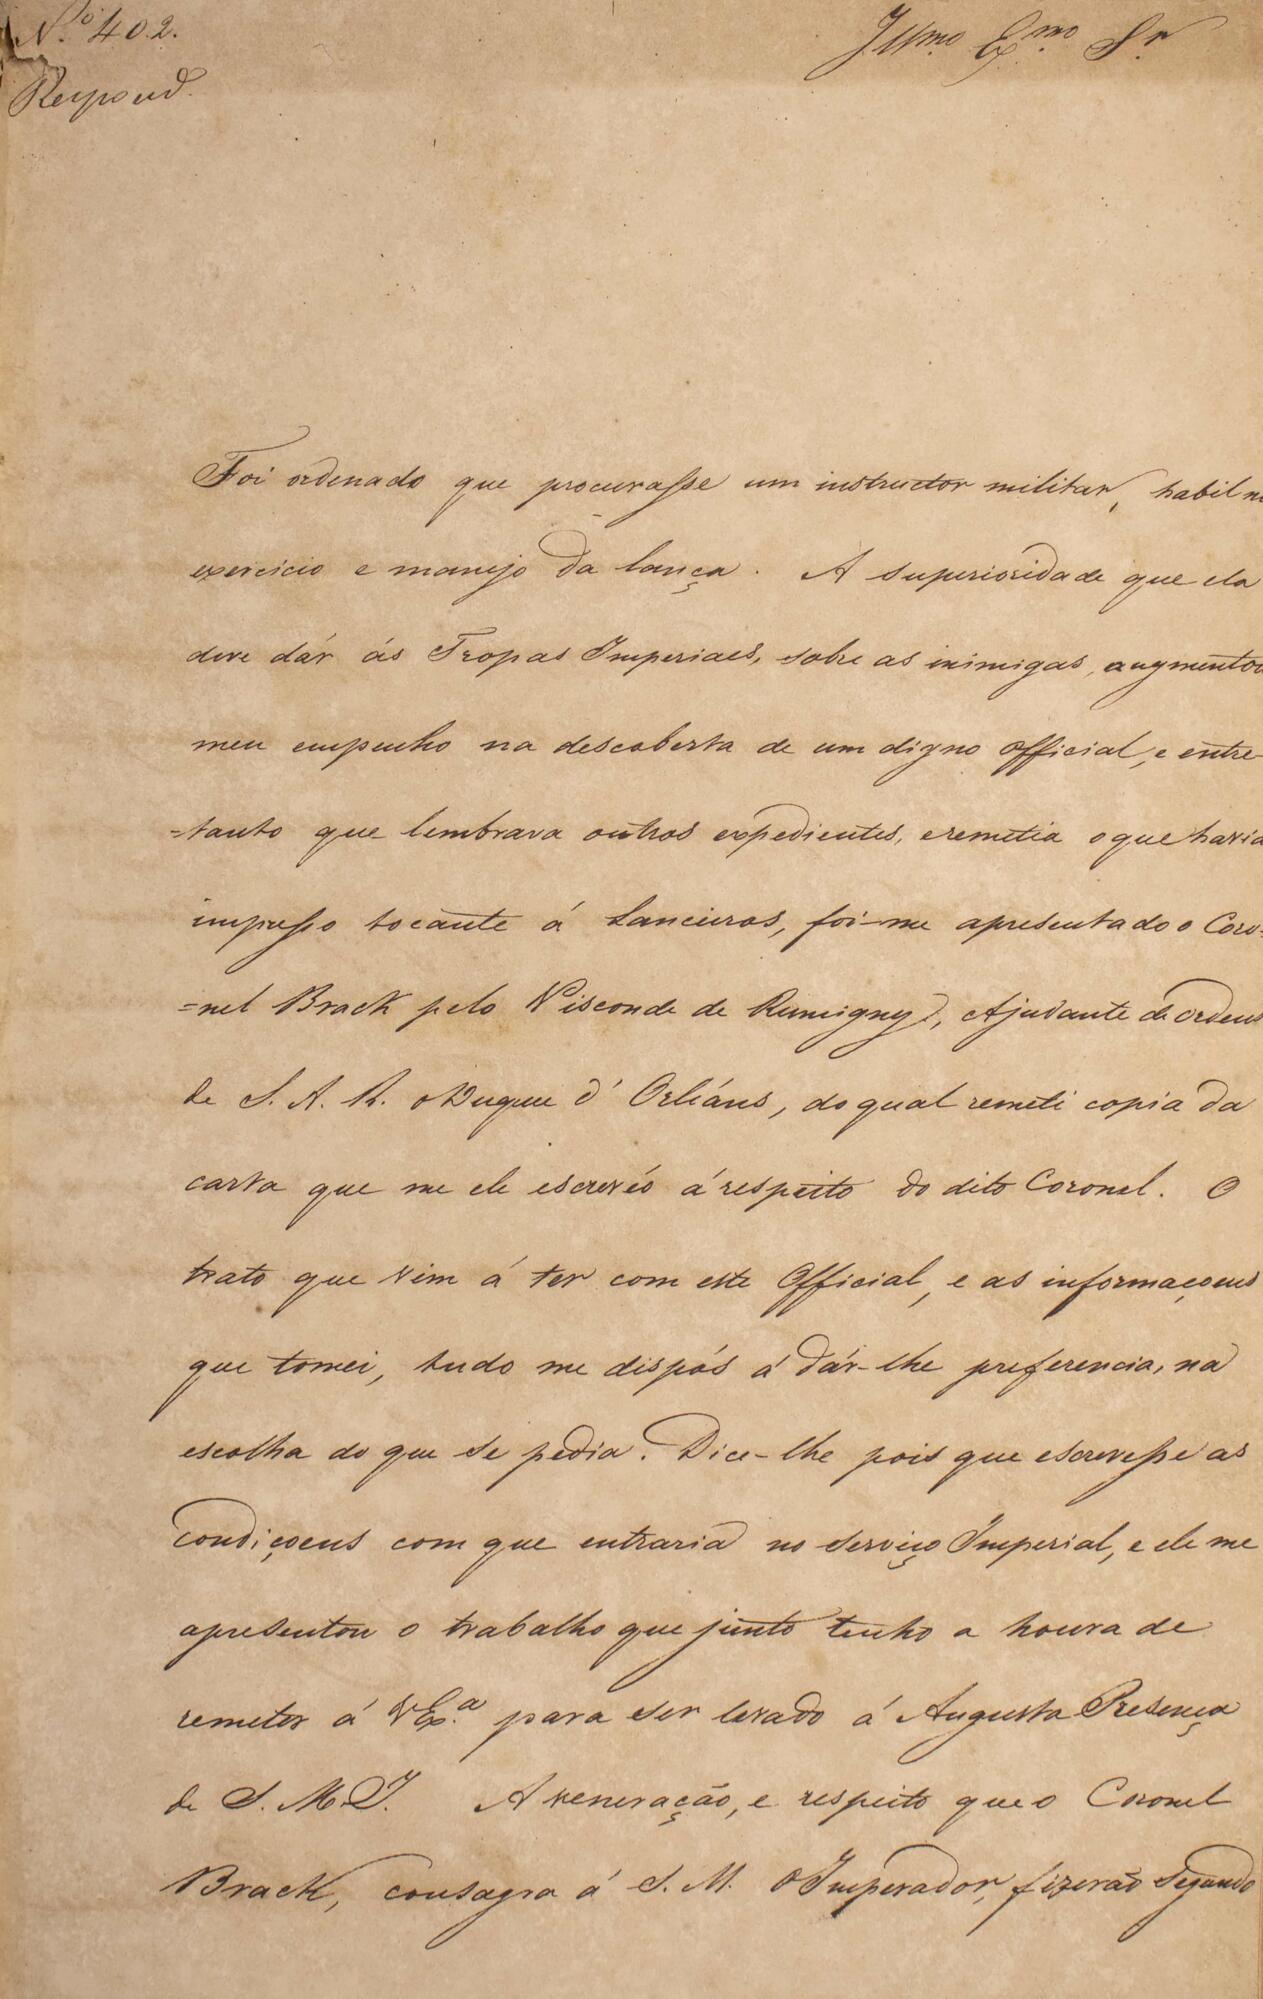 N.º 402.
Respond.
Illmo. Exmo. Sr.
Foi ordenado que procurasse um instructor militar, habil n
exercicio e manejo da lança. A superioridade que ela
deve dár ás Tropas Imperiaes, sobre as inimigas, augmentou
meu empenho na descoberta de um digno official, e entre-
=tanto que lembrava outros expedientes, e remetia o que havia
impresso tocante á Lanceiros, foi-me apresentado o Coro-
=nel Brack pelo Visconde de Rumigny, Ajudante de Ordens
de S. A. R. o Duque d' Orléans, do qual remeti copia da
carta que me ele escrevéo á respeito do dito Coronel. O
trato que vim á ter com este Official, e as informaçoens
que tomei, tudo me dispós á dár-lhe preferencia, na
escolha do que se pedia. Dice-lhe pois que escrevesse as
condiçoens com que entraria no serviço Imperial, e ele me
apresentou o trabalho que junto tenho a honra de
remeter á V Ex.ª para ser levado á Augusta Presença
de S. M. I. A veneração, e respeito que o Coronel
Brack, consagra á S. M. O Imperador, fizerão segundo